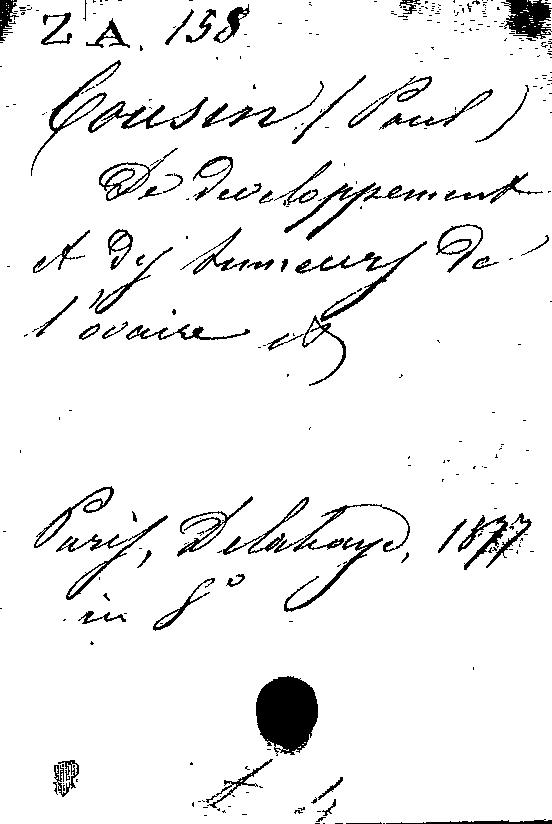 Z A. 158
Cousin (Paul)
De developpement
et des tumeurs de
l'ovaire etc
Paris, Delahaye, 1877
in 8°